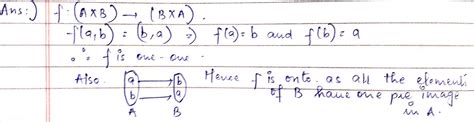 Ans:) f : (A×B) → (B×A).
f(a,b) = (b,a) ⇒ f(a)=b and f(b)=a
∴ f is one-one.
Also. a b Hence f is onto as all the elements
b a of B have one pre image
A B in A.